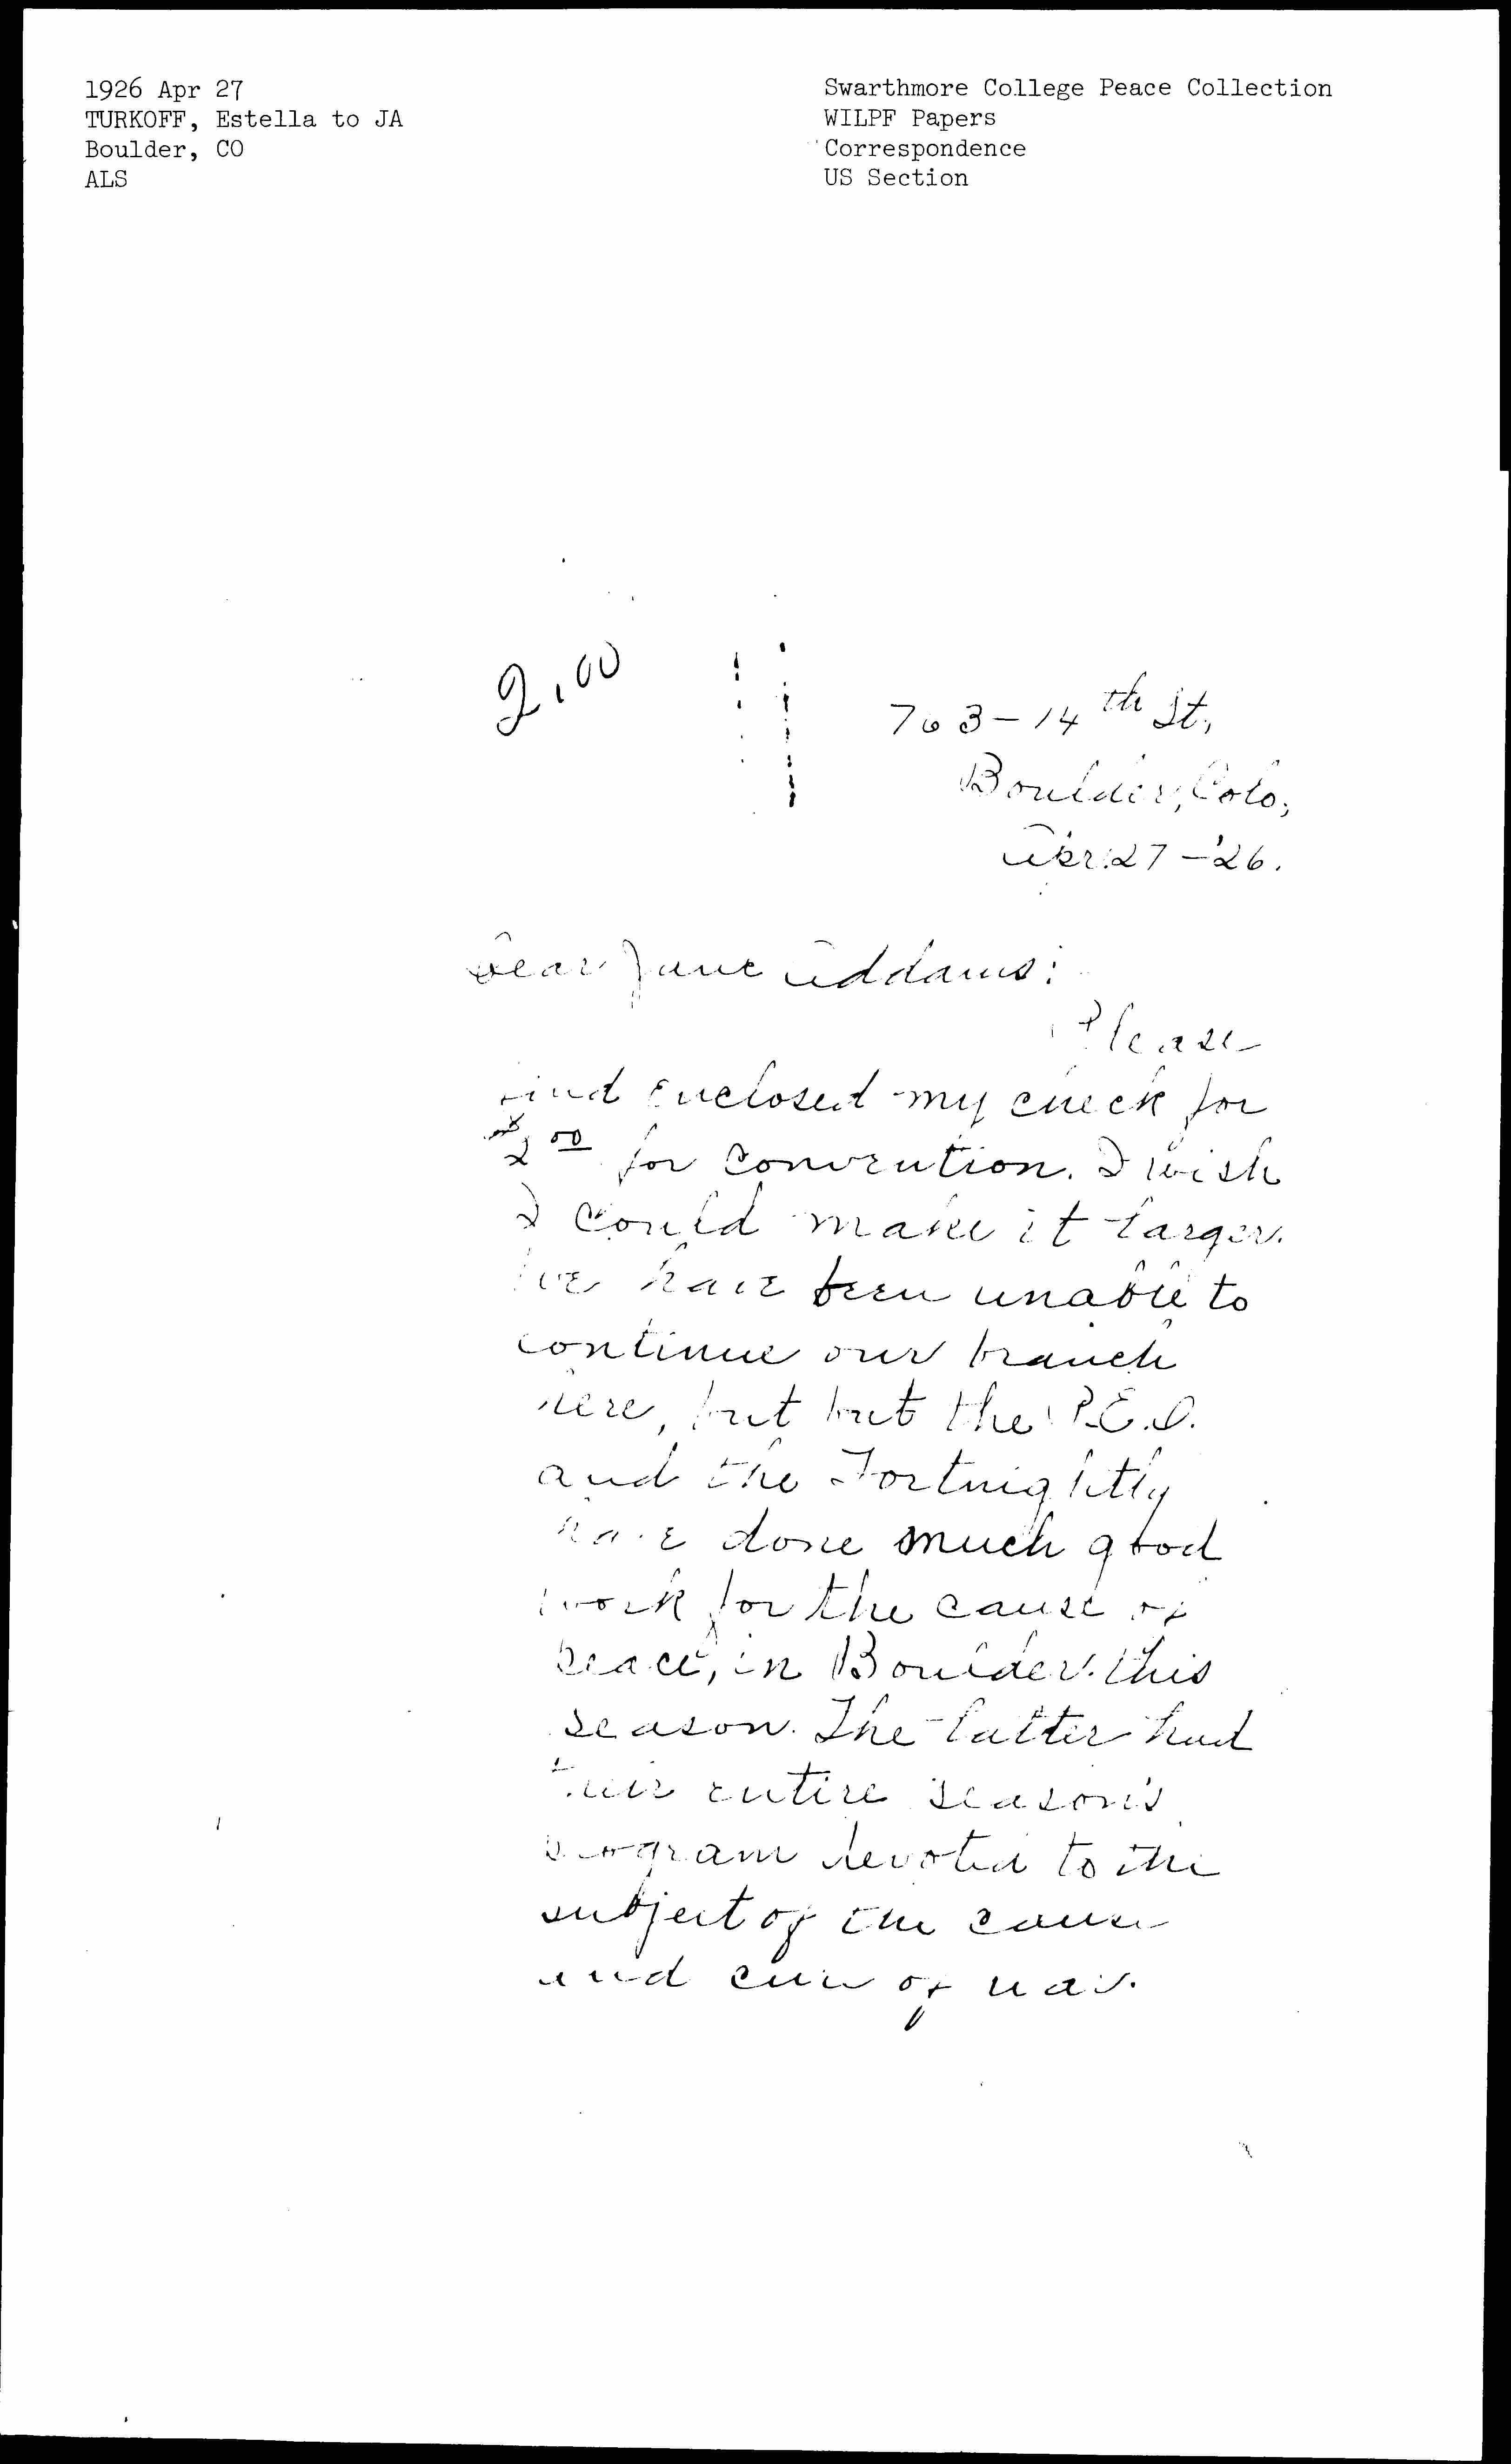 1926 Apr 27
TURKOFF, Estella to JA
Boulder, CO
ALS
Swarthmore College Peace Collection
WILPF Papers
Correspondence
US Section
2.00
763-14th St,
Boulder, Colo,
Apr. 27-'26.
Dear Jane Addams:
Please
find enclosed my check for
$2.00 for convention. I wish
I could make it larger.
We have been unable to
continue our branch
here, but but the P.E.O.
and the Fortnightly
have done much good
work for the cause of
peace, in Boulder this
season. The latter had
their entire season's
program devoted to the
subject of the cause
and cure of war.